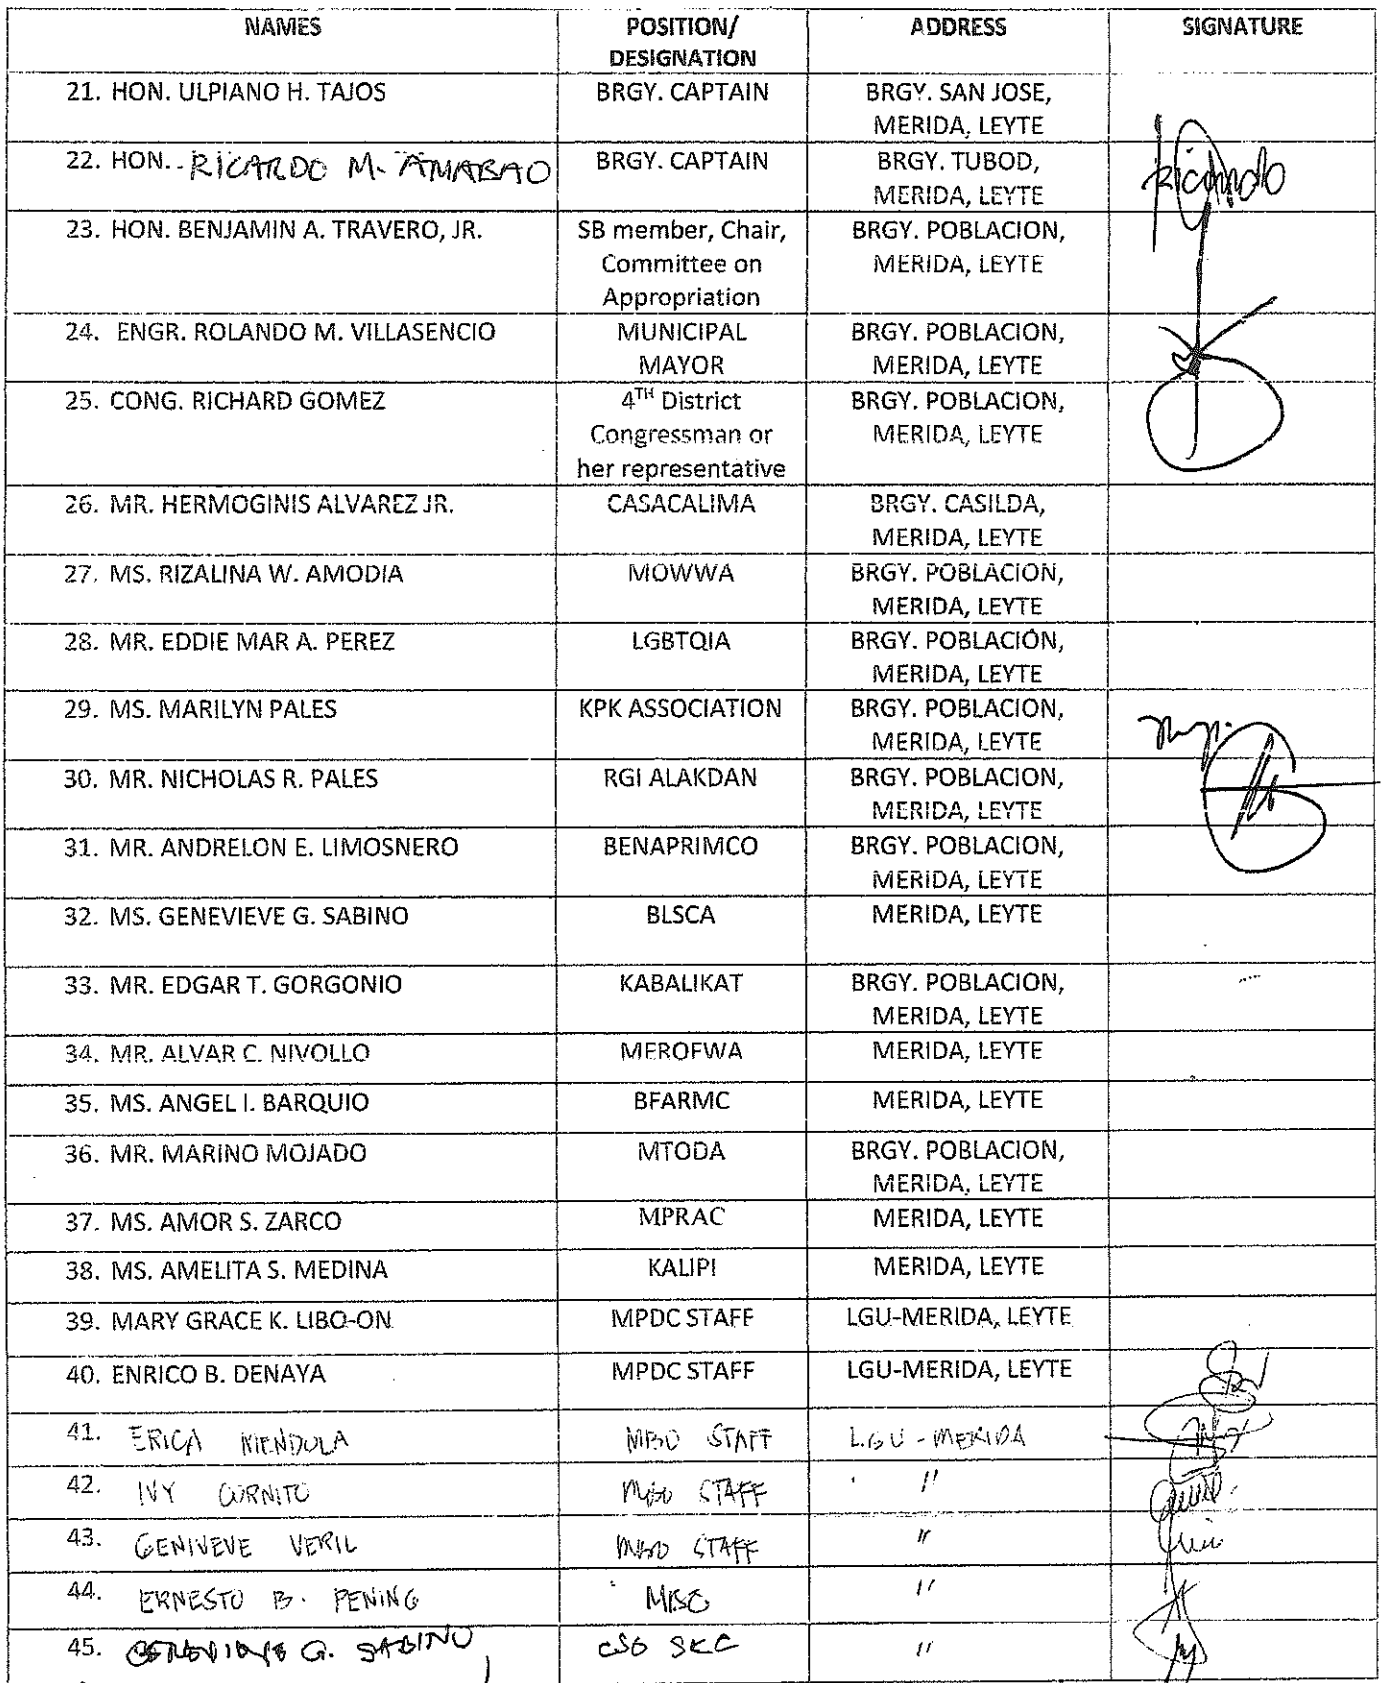 NAMES POSITION/ ADDRESS SIGNATURE
DESIGNATION
21. HON. ULPIANO H. TAJOS BRGY. CAPTAIN BRGY. SAN JOSE,
MERIDA, LEYTE
22. HON. RICARDO M. AMABAO BRGY. CAPTAIN BRGY. TUBOD,
MERIDA, LEYTE
Ricardo
23. HON. BENJAMIN A. TRAVERO, JR. SB member, Chair, BRGY. POBLACION,
Committee on MERIDA, LEYTE
Appropriation
24. ENGR. ROLANDO M. VILLASENCIO MUNICIPAL BRGY. POBLACION,
MAYOR MERIDA, LEYTE
25. CONG. RICHARD GOMEZ 4TH District BRGY. POBLACION,
Congressman or MERIDA, LEYTE
her representative
26. MR. HERMOGINIS ALVAREZ JR. CASACALIMA BRGY. CASILDA,
MERIDA, LEYTE
27. MS. RIZALINA W. AMODIA MOWWA BRGY. POBLACION,
MERIDA, LEYTE
28. MR. EDDIE MAR A. PEREZ LGBTQIA BRGY. POBLACION,
MERIDA, LEYTE
29. MS. MARILYN PALES KPK ASSOCIATION BRGY. POBLACION,
MERIDA, LEYTE
30. MR. NICHOLAS R. PALES RGI ALAKDAN BRGY. POBLACION,
MERIDA, LEYTE
31. MR. ANDRELON E. LIMOSNERO BENAPRIMCO BRGY. POBLACION,
MERIDA, LEYTE
32. MS. GENEVIEVE G. SABINO BLSCA MERIDA, LEYTE
33. MR. EDGAR T. GORGONIO KABALIKAT BRGY. POBLACION,
MERIDA, LEYTE
34. MR. ALVAR C. NIVOLLO MEROFWA MERIDA, LEYTE
35. MS. ANGEL I. BARQUIO BFARMC MERIDA, LEYTE
36. MR. MARINO MOJADO MTODA BRGY. POBLACION,
MERIDA, LEYTE
37. MS. AMOR S. ZARCO MPRAC MERIDA, LEYTE
38. MS. AMELITA S. MEDINA KALIPI MERIDA, LEYTE
39. MARY GRACE K. LIBO-ON MPDC STAFF LGU-MERIDA, LEYTE
40. ENRICO B. DENAYA MPDC STAFF LGU-MERIDA, LEYTE
41. ERICA MENDOLA MBO STAFF LGU - MERIDA
42. IVY CORNITO MBO STAFF "
43. GENIVEVE VERIL MBO STAFF "
44. ERNESTO B. PENING MBO "
45. G. SABINO CSO "